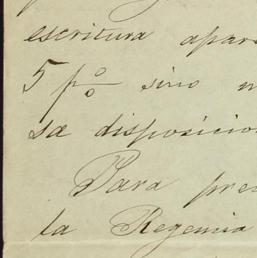 escritura apar
5 p% sino n
sa disposicio
Para pre
la Regencia